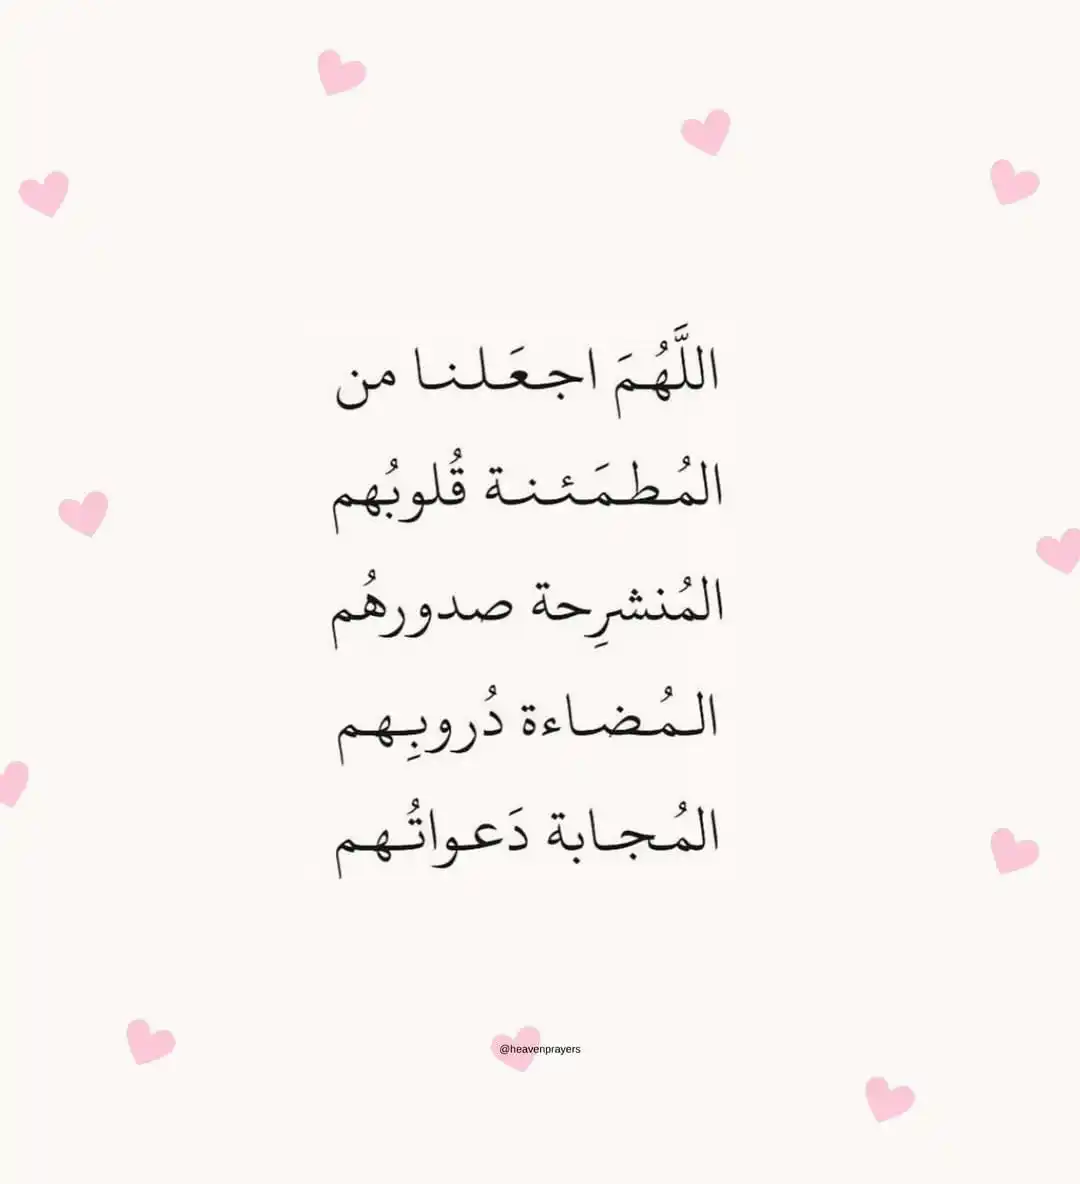 اللَّهُمَ اجعَلنا من
المُطمَئنة قُلوبُهم
المُنشرِحة صدورهُم
المُضاءة دُروبِهم
المُجابة دَعواتُهم
@heavenprayers